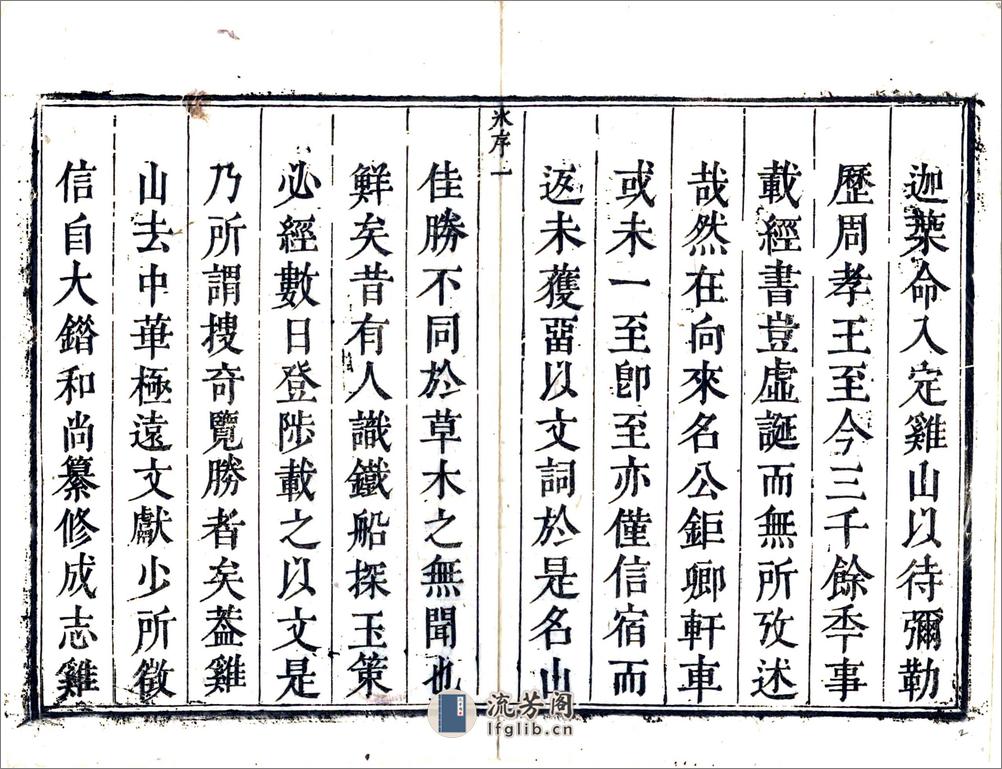 迦葉命入定雞山以待彌勒
歷周孝王至今三千餘秊事
載經書豈虛誕而無所攷述
哉然在向來名公鉅卿軒車
或未一至卽至亦僅信宿而
返未獲畱以文詞於是名山
氷序一
佳勝不同於草木之無聞也
鮮矣昔有人識鐵船探玉策
必經數日登陟載之以文是
乃所謂搜奇覽勝者矣葢雞
山去中華極遠文獻少所徵
信自大錯和尚纂修成志雞
流芳阁
lfglib.cn
2